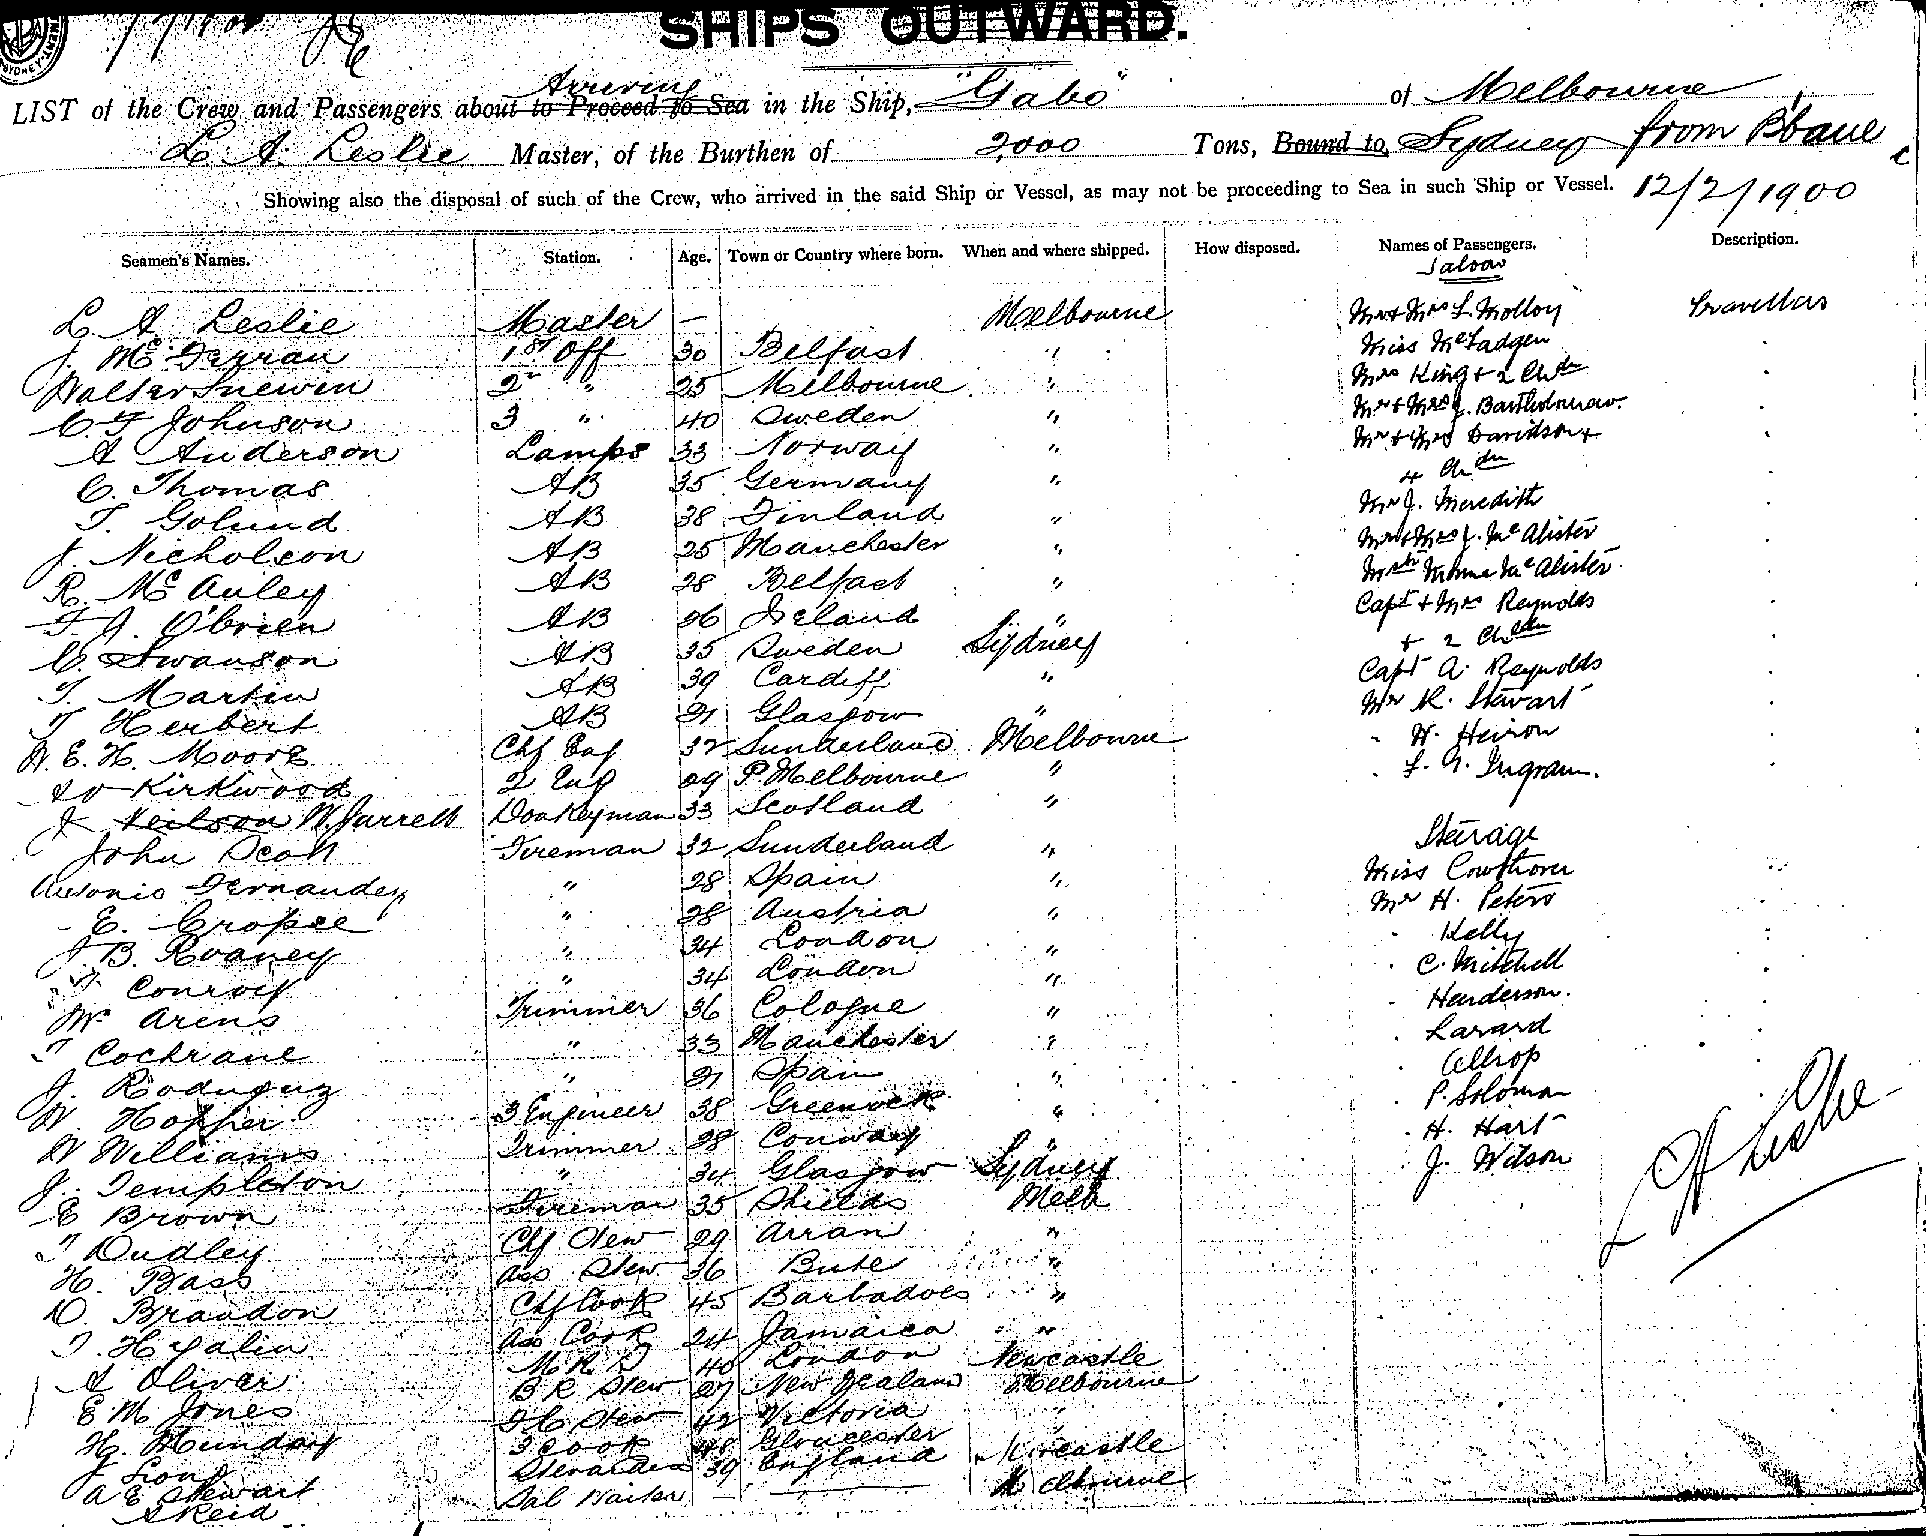 SHIPS OUTWARD.
Arriving
LIST of the Crew and Passengers about to Proceed to Sea in the Ship, "Gabo" of Melbourne
L. A. Leslie Master, of the Burthen of 2,000 Tons, Bound to, Sydney from B'bane
Showing also the disposal of such of the Crew, who arrived in the said Ship or Vessel, as may not be proceeding to Sea in such Ship or Vessel. 12/2/1900
Seamen's Names. Station. Age. Town or Country where born. When and where shipped. How disposed. Names of Passengers. Description.
Saloon
L. A Leslie Master — Melbourne Mr + Mrs L. Molloy Travellers
J. McFerran 1st Off 30 Belfast " Miss McFadgen
Walter Snewin 2nd " 25 Melbourne " Mrs King + 2 Chdn
C. F Johnson 3 " 40 Sweden " Mr + Mrs J. Bartholomew.
A Anderson Lamps 33 Norway " Mr + Mrs Davidson +
C. Thomas AB 35 Germany " 4 Chdn
T. Golund AB 38 Finland " Mr J. Meredith
J. Nicholson AB 25 Manchester " Mr + Mrs J. McAlister
R. McAuley AB 28 Belfast " McAlister
T. J. O'Brien AB 26 Ireland " Capt + Mrs Reynolds
C. Swanson AB 35 Sweden Sydney + 2 Chdn
T. Martin AB 39 Cardiff " Capt A. Reynolds
T Herbert AB 21 Glasgow " Mr R. Stewart
W. E. H. Moore Chf Eng 32 Sunderland Melbourne " H. Heiron
Kirkwood 2 Eng 29 P. Melbourne " " L. G. Ingram.
J Neilson W. Jarrett Donkeyman 33 Scotland "
John Scott Fireman 32 Sunderland " Steerage
Antonio Fernandez " 28 Spain " Miss Cowthorn
E. Cropee " 28 Austria " Mr H. Peters
J. B. Rooney " 34 London " " Kelly
Conroy " 34 London " " C. Mitchell
Wm Arens Trimmer 36 Cologne " " Henderson.
T Cochrane " 33 Manchester " " Larard
J. Roduguz " 21 Spain " " Allrop
W. Hopper 3 Engineer 38 Greenock " " P. Soloman
W Williams Trimmer 28 Conway " " H. Hart
J. Templeton " 34 Glasgow Sydney " J. Wilson
E Brown Fireman 35 Shields Melb
T Dudley Chf Stew 29 Arran "
H. Bass Ass Stew 36 Bute "
D. Brandon Chf Cook 45 Barbadoes "
T. Hyalin Ass Cook 24 Jamaica "
A Oliver 40 London Newcastle
E M Jones B R Stew 27 New Zealand Melbourne
H. Munday Stew 42 Victoria "
J Lions 3 Cook 48 Gloucester Newcastle
A E Stewart Stewardess 39 England Melbourne
A Reid Sal Waiter
L A Leslie